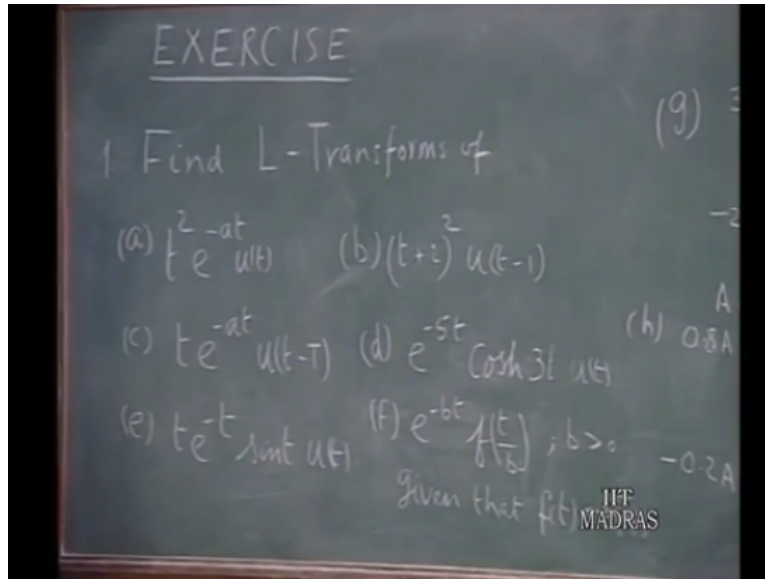 EXERCISE
1. Find L-Transforms of
(a) t² e^-at u(t) (b) (t+2)² u(t-1)
(c) t e^-at u(t-T) (d) e^-5t Cosh 3t u(t)
(e) t e^-t sint u(t) (f) e^-bt f(t/b) ; b>0
given that f(t)
(g) 3
-2
(h) A
0.8A
-0.2A
IIT
MADRAS